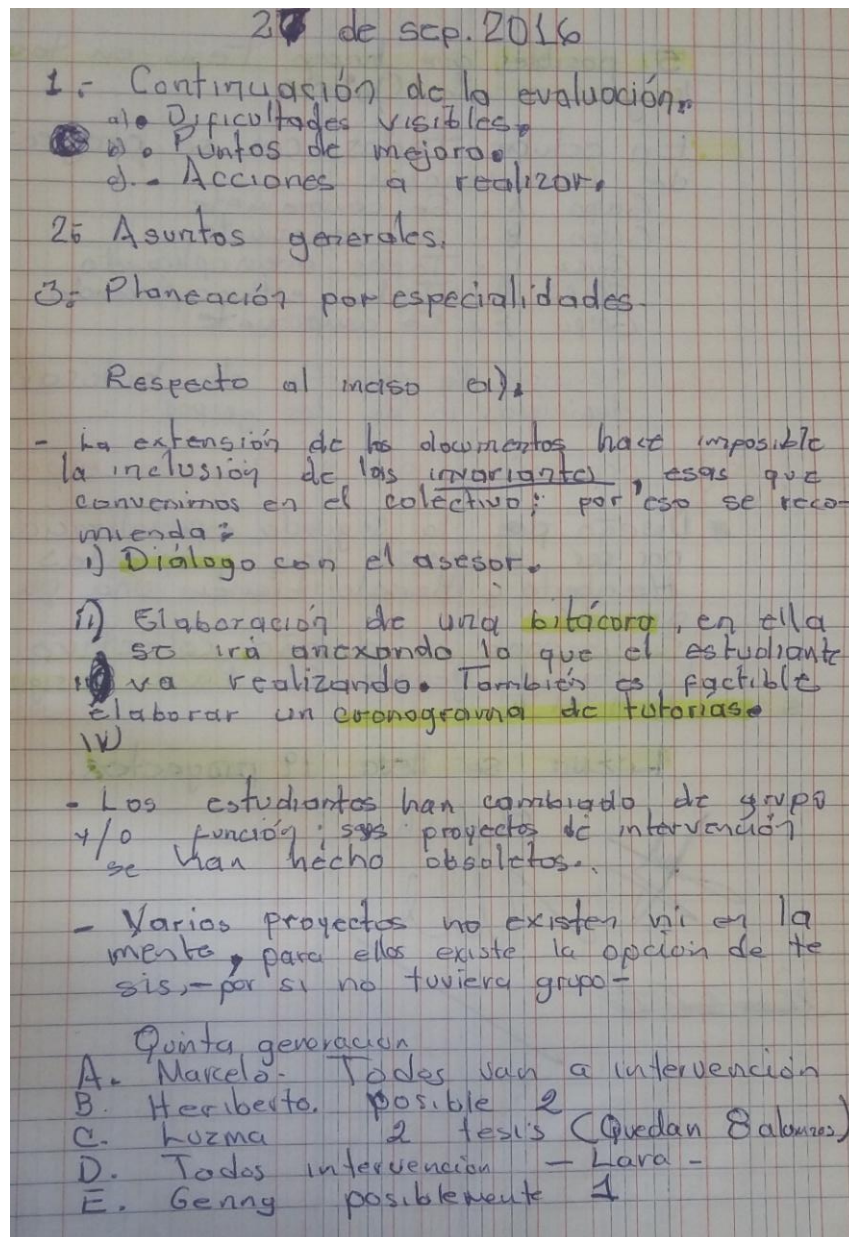 27 de sep. 2016
1.- Continuación de la evaluación.
a). Dificultades visibles.
b). Puntos de mejora.
c). - Acciones a realizar.
2.- Asuntos generales.
3.- Planeación por especialidades.
Respecto al inciso a).
- La extensión de los documentos hace imposible
la inclusión de las invariantes, esas que
convenimos en el colectivo; por eso se reco-
mienda:
i) Diálogo con el asesor.
ii) Elaboración de una bitácora, en ella
se irá anexando lo que el estudiante
va realizando. También es factible
elaborar un cronograma de tutorias.
IV)
- Los estudiantes han cambiado de grupo
y/o función; sus proyectos de intervención
se han hecho obsoletos..
- Varios proyectos no existen ni en la
mente, para ellos existe la opción de te
sis, - por si no tuviera grupo -
Quinta generación
A. Marcelo - Todos van a intervención
B. Heriberto. posible 2
C. Luzma 2 tesis (Quedan 8 alumnos)
D. Todos intervención - Lara -
E. Genny posiblemente 1